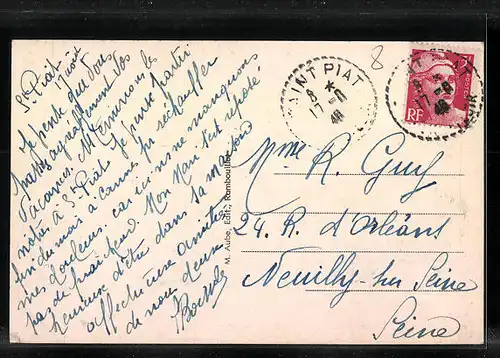 St Piat
17 août
Je pense que vous
passez agréablement vos
vacances. Ns terminons les
notre à St Piat. Je pense partir
fin du mois à Cannes réchauffer
mes douleurs. car ici ns ne manquons
pas de fraicheur. Mon Mari est reposé
heureux d'être dans sa maison
affectueuse amitiés
de nous deux
8
SAINT PIAT
17 -8
48
RF
M. Aube, Edit., Rambouillet
Mme R. Guy
24. R. d'Orléans
Neuilly-sur Seine
Seine